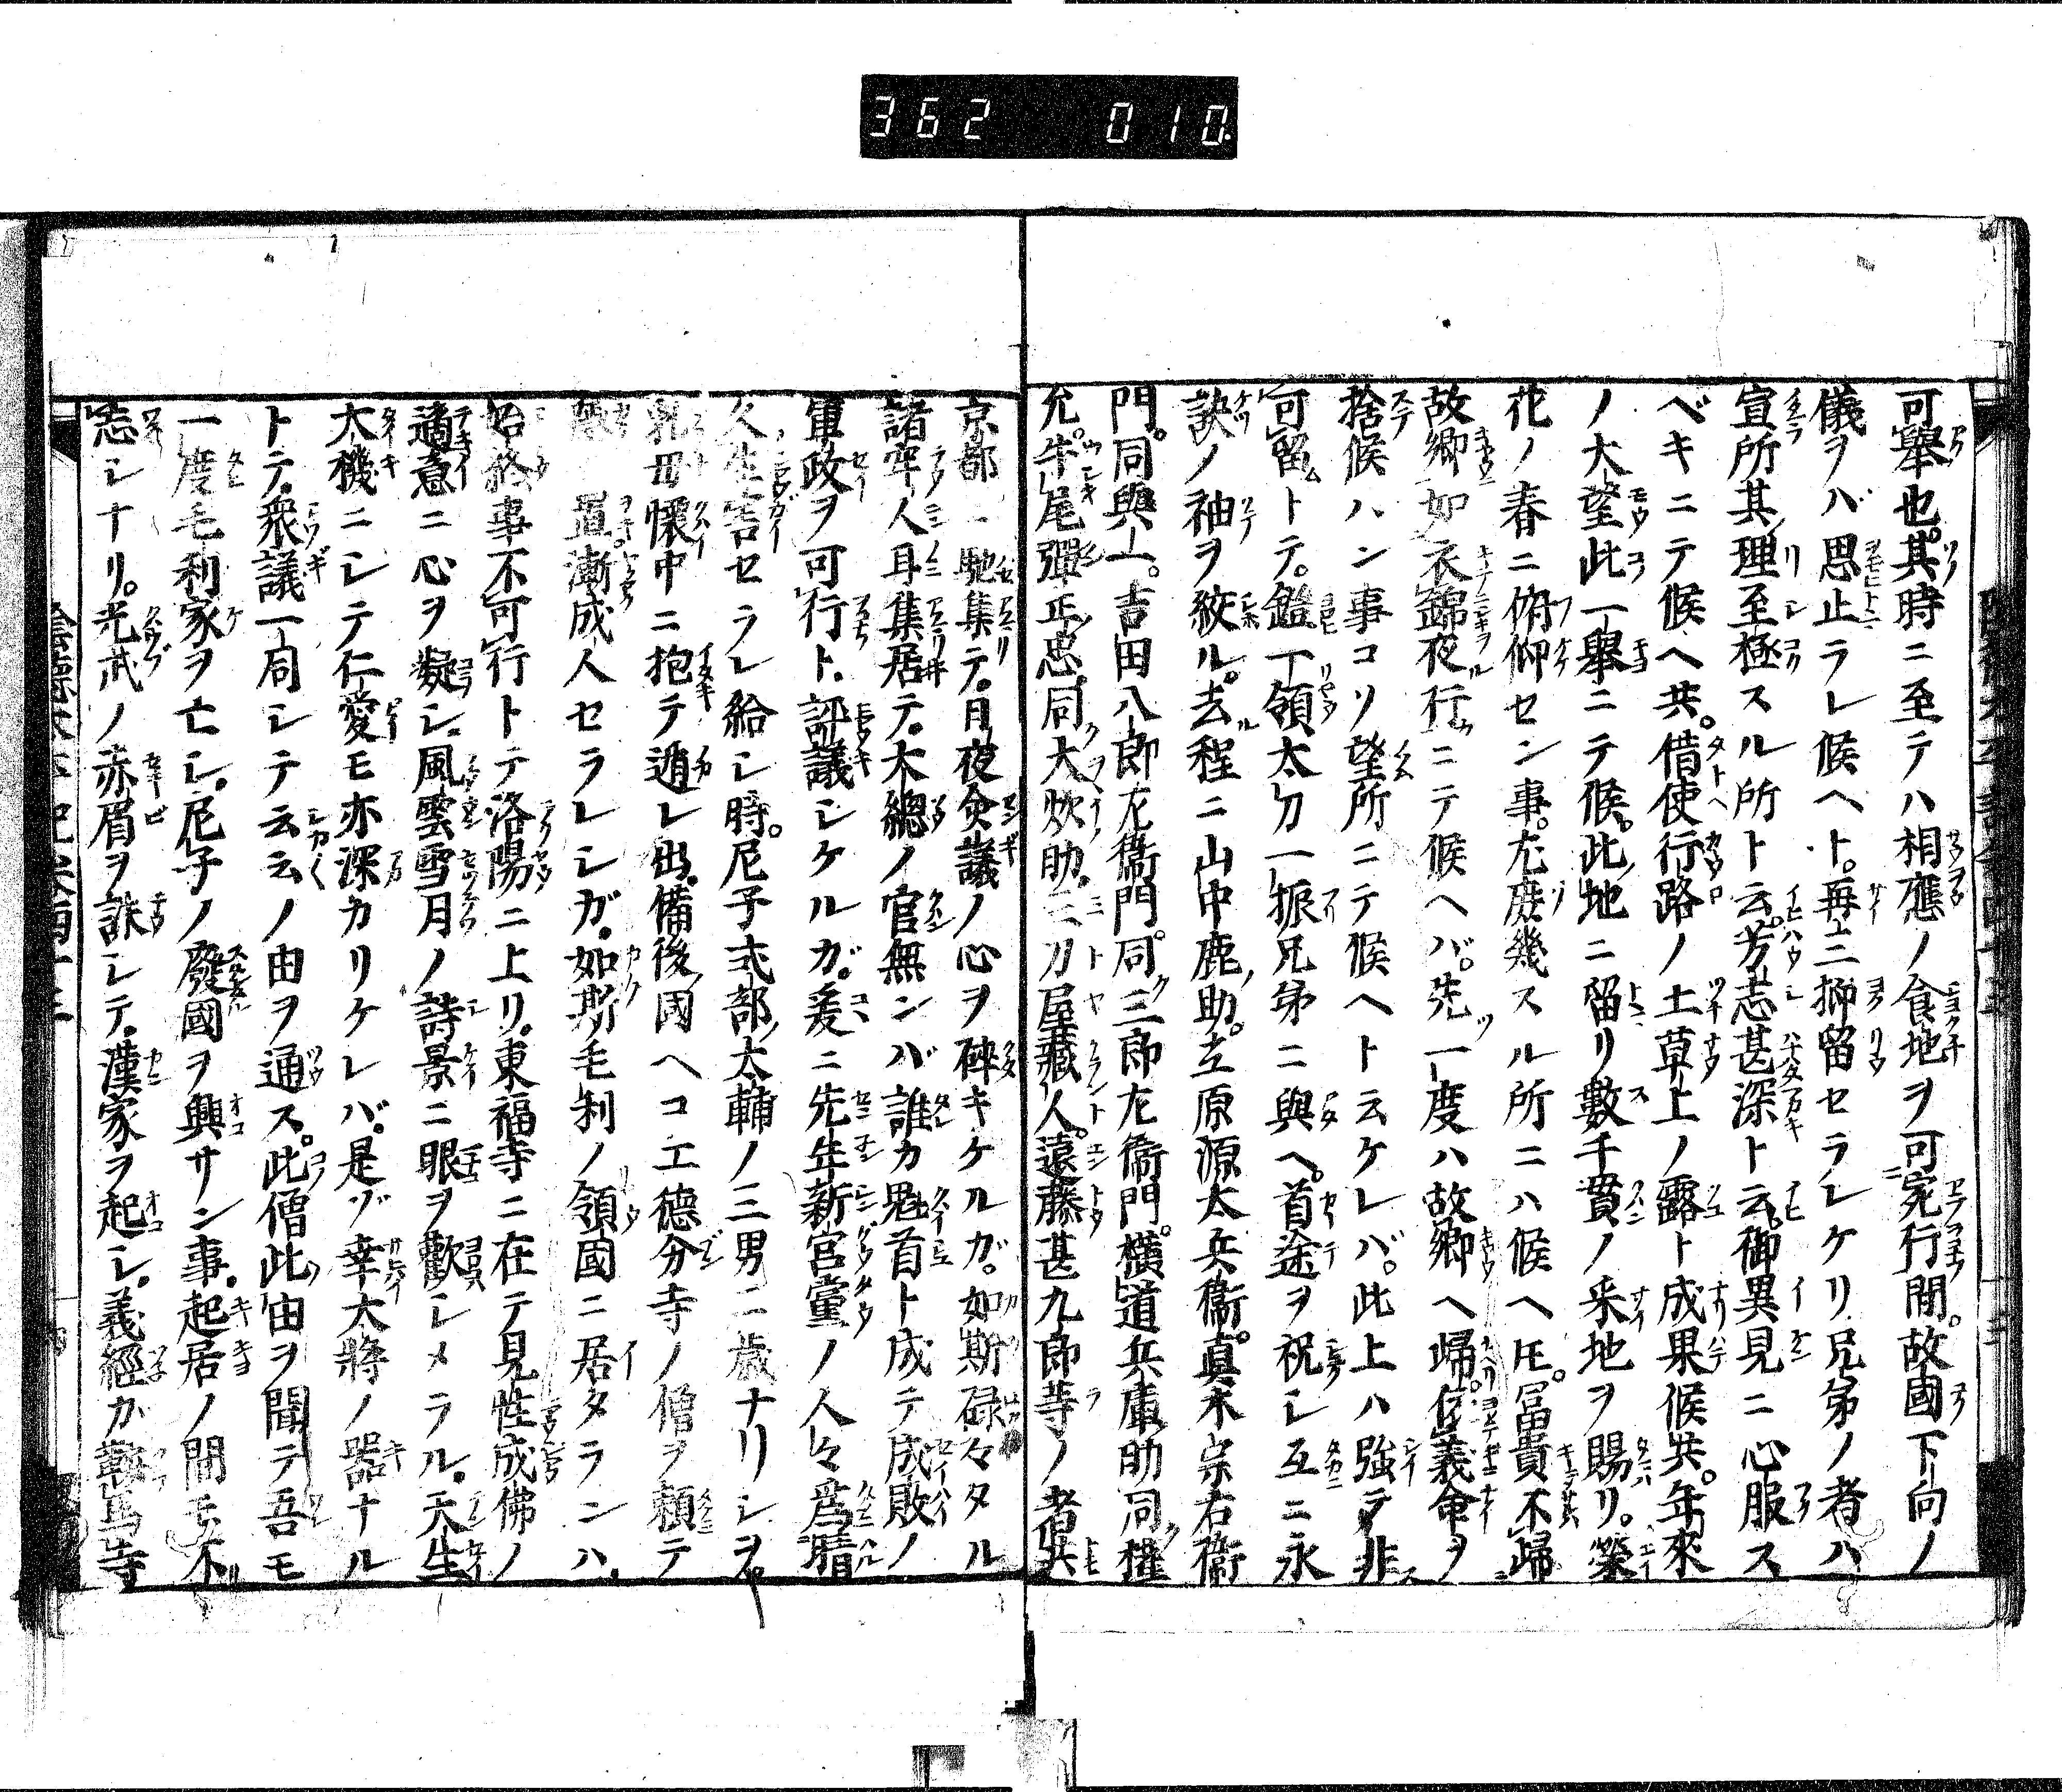 362 010
可舉也。其時ニ至テハ相應ノ食地ヲ可宛行間。故國下向ノ
儀ヲバ思止ラレ候ヘト。再三抑留セラレケリ兄弟ノ者ハ
宣所其理至極スル所ト云。芳志甚深ト云。御異見ニ心服ス
ベキニテ候ヘ共。借使行路ノ土草上ノ露ト成果候共。年來
ノ大望此一舉ニテ候。此地ニ留リ數千貫ノ采地ヲ賜リ。榮
花ノ春ニ俯仰セン事。尤庶幾スル所ニハ候ヘ圧。冨貴不歸
故郷如衣錦夜行ニテ候ヘバ。先一度ハ故郷ヘ歸。義命ヲ
捨候ハン事コソ望所ニテ候ヘト云ケレバ。此上ハ強テ非
可留トテ。鎧一領太刀一振兄弟ニ與ヘ。首途ヲ祝シ互ニ永
訣ノ袖ヲ絞ル。去程ニ山中鹿助。立原源太兵衞。眞木宗右衞
門。同與一。吉田八郎左衞門。同三郎左衞門。横道兵庫助同權
允。牛尾彈正忠。同大炊助。三刀屋藏人。遠藤甚九郎等ノ者共
京都ニ馳集テ。日夜僉議ノ心ヲ碎キケルガ。如斯碌々タル
諸牢人耳集居テ。大總ノ官無ンバ誰カ魁首ト成テ成敗ノ
軍政ヲ可行ト。評議シケルガ。爰ニ先年新宮黨ノ人々爲晴
久生害セラレ給シ時。尼子式部太輔ノ三男二歳ナリシヲ。
乳母懷中ニ抱テ遁レ出。備後國ヘコエ德分寺ノ僧ヲ頼テ
置漸成人セラレシガ。如斯毛利ノ領國ニ居タランハ。
始終事不可行トテ洛陽ニ上リ。東福寺ニ在テ見性成佛ノ
適意ニ心ヲ凝シ。風雲雪月ノ詩景ニ眼ヲ歡シメラル。天生
大機ニシテ仁愛モ亦深カリケレバ。是ゾ幸大將ノ器ナル
トテ。衆議一同シテ云云ノ由ヲ通ス。此僧此由ヲ聞テ吾モ
一度毛利家ヲ亡シ。尼子ノ廢國ヲ興サン事。起居ノ間モ不
忘シナリ。光武ノ赤眉ヲ誅シテ。漢家ヲ起シ。義經カ鞍馬寺